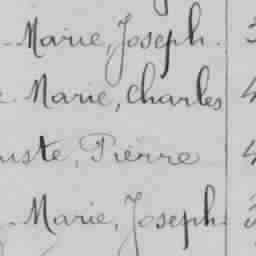 Marie, Joseph
Marie, Charles
uste, Pierre
Marie, Joseph